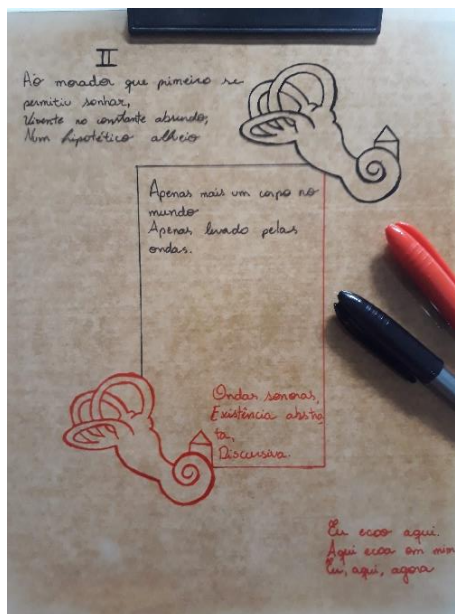 II
Ao morador que primeiro se
permitiu sonhar,
Vivente no constante absurdo,
Num hipotético alheio
Apenas mais um corpo no
mundo
Apenas levado pelas
ondas.
Ondas sonoras,
Existência abstra
ta,
Discursiva.
Eu ecoo aqui.
Aqui ecoa em mim
Eu, aqui, agora